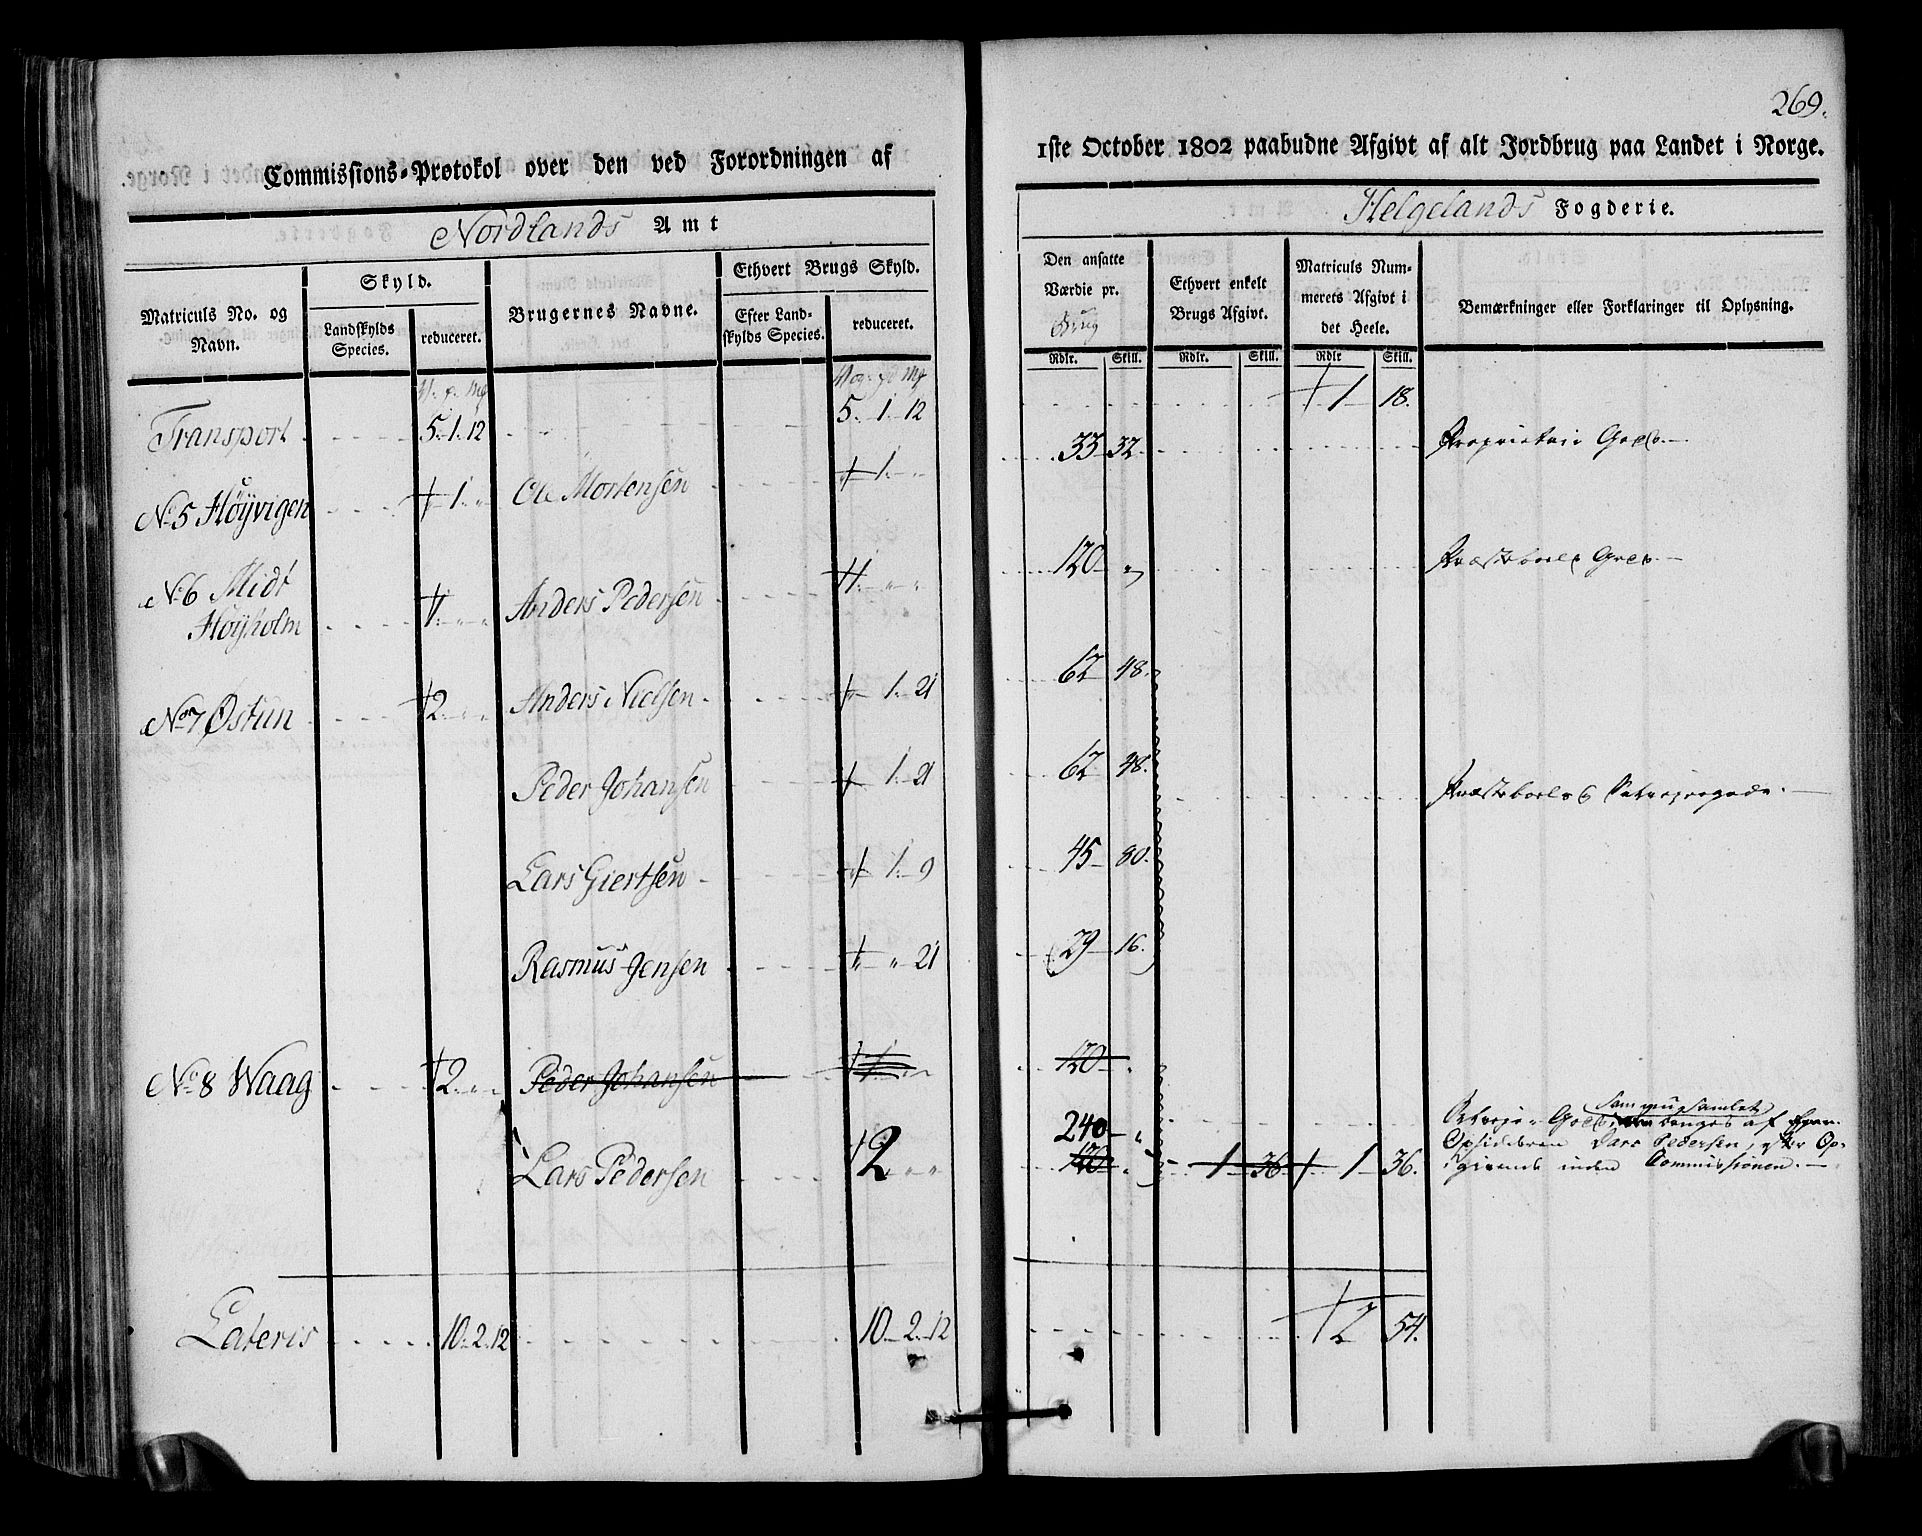 269.
Commissions-Protokol over den ved Forordningen af
1ste October 1802 paabudne Afgivt af alt Jordbrug paa Landet i Norge.
Nordlands Amt
Helgelands Fogderie.
Matriculs No. og Navn.
Skyld.
Landskylds Species.
reduceret.
Brugernes Navne.
Ethvert Brugs Skyld.
Efter Landskylds Species.
reduceret.
Den ansatte Værdie pr. Brug
Rdlr. Skill.
Ethvert enkelt Brugs Afgivt.
Rdlr. Skill.
Matriculs Nummerets Afgivt i det Heele.
Rdlr Skill.
Bemærkninger eller Forklaringer til Oplysning.
Transport 5. 1. 12 5. 1. 12 1 18.
No 5 Høÿvigen 1. Ole Mortensen 1. 33 32 Proprietair Gods
No 6 Midt
Høÿholm 1. Anders Pedersen 1. 120 Præsteboels Gods
No 7 Østun 2. Anders Nielsen 1. 21 62 48.
Peder Johansen 1. 21 62 48. Præsteboels
Lars Giertsen 1. 9 45 80.
Rasmus Jensen 21 29 16.
No 8 Waag 2. Peder Johansen 1. 120
Lars Pedersen 2 240 120 1 36 1 36.
sammesamlet
Gods bruges af
Opsidderen Lars Pedersen, efter Op-
givende inden Commissionen.
Lateris 10. 2. 12 10. 2. 12 2 54.